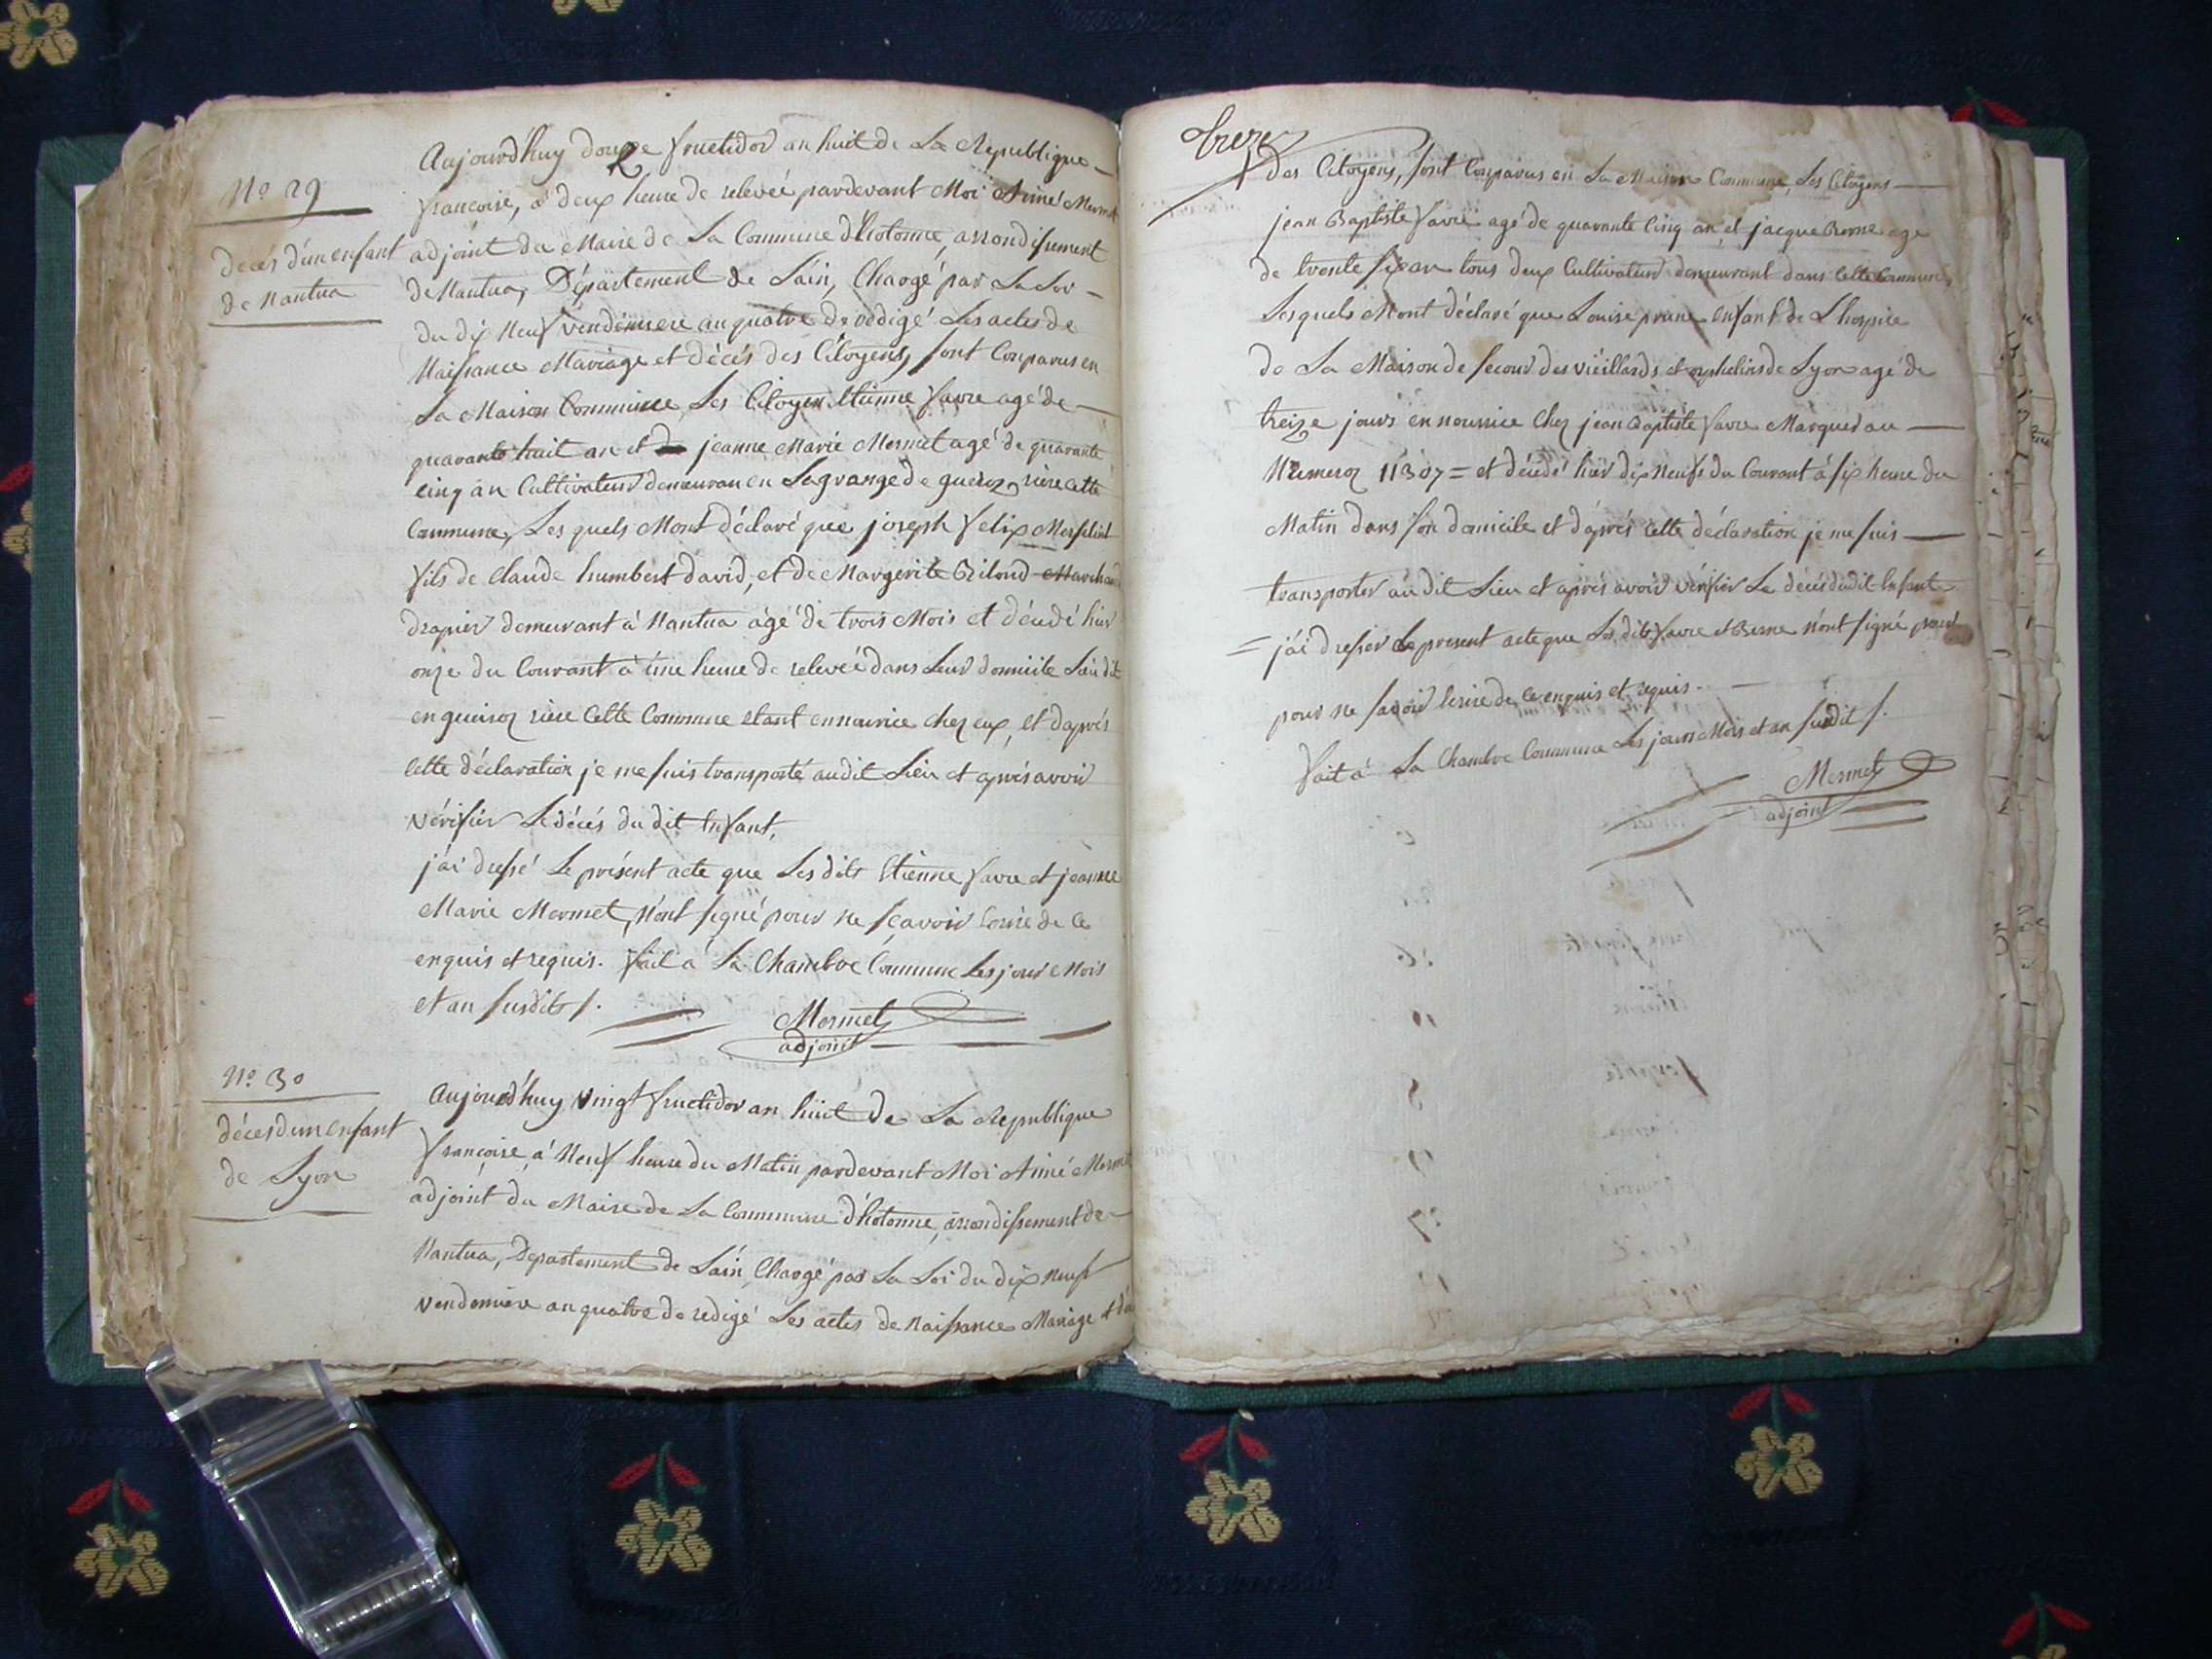 No 29
décés d'un enfant
de Nantua
Aujourd'huy douze fructidor an huit de La Republique
francoise, à deux heure de releveé pardevant Moi Aimé Mermet
adjoint du Maire de La Commune d'hotonne, arrondissement
de Nantua, Département de Lain, Chargé par La Loi
du dix Neuf vendémiere an quatre de rédigé Les actes de
Naissance Mariage et décés des Citoyens, sont Comparus en
La Maison Commune, Les Citoyen Etienne favre agé de
quarante huit an et jeanne Marie Mermet agé de quarante
cinq an Cultivateur demeuran en Lagrange de rière cette
Commune, Les quels Mont déclaré que joseph felix
fils de Claude humbert david, et de Margerite Marchand
drapier demeurant à Nantua âgé de trois Mois et décedé hier
onze du Courant à une heure de releveé dans Leur domicile Lieu dit
en rière Cette Commune etant en nourrice chez eux, et d'aprés
Cette déclaration je me suis transporté audit Lieu et aprés avoir
vérifier Le décés du dit Enfant,
j'ai dressé Le présent acte que Les dits Etienne favre et jeanne
Marie Mermet, N'ont signé pour ne sçavoir Ecrire de Ce
enquis et requis. fait à La Chambre Commune Les jour Mois
et an susdits /.
Mermet
adjoint
No 30
décés d'un enfant
de Lyon
Aujourd'huy vingt fructidor an huit de La Republique
francoise à Neuf heure du Matin pardevant Moi Aimé Mermet
adjoint du Maire de La Commune d'hotonne, arrondissement de
Nantua, Departement de Lain, Chargé par La Loi du dix neuf
Vendemière an quatre de redigé Les actes de Naissance Mariage et
treize
des Citoyens, sont Comparus en La Maison Commune, Les Citoyens
jean Baptiste favre agé de quarante Cinq an et jacque Berne age
de trente six an tous deux Cultivateur demeurant dans Cette Commune,
Lesquels Mont déclaré que Louise prune enfant de L'hospice
de La Maison de secour des vieillards et orphelins de Lyon agé de
treize jours en nourrice Chez jean Baptiste favre Marqued au
Numero 11307 = et décedé hier dix Neufs du Courant à six heure du
Matin dans son domicile et d'aprés Cette déclaration je me suis
transporter au dit Lieu et aprés avoir vérifier Le décés dudit Enfant
= j'ai dresser Le present acte que Les dits favre et Berne N'ont signé pour
pour ne savoir Ecrire de Ce enquis et requis.
fait à La Chambre Commune Les jours Mois et an susdit /.
Mermet
adjoint